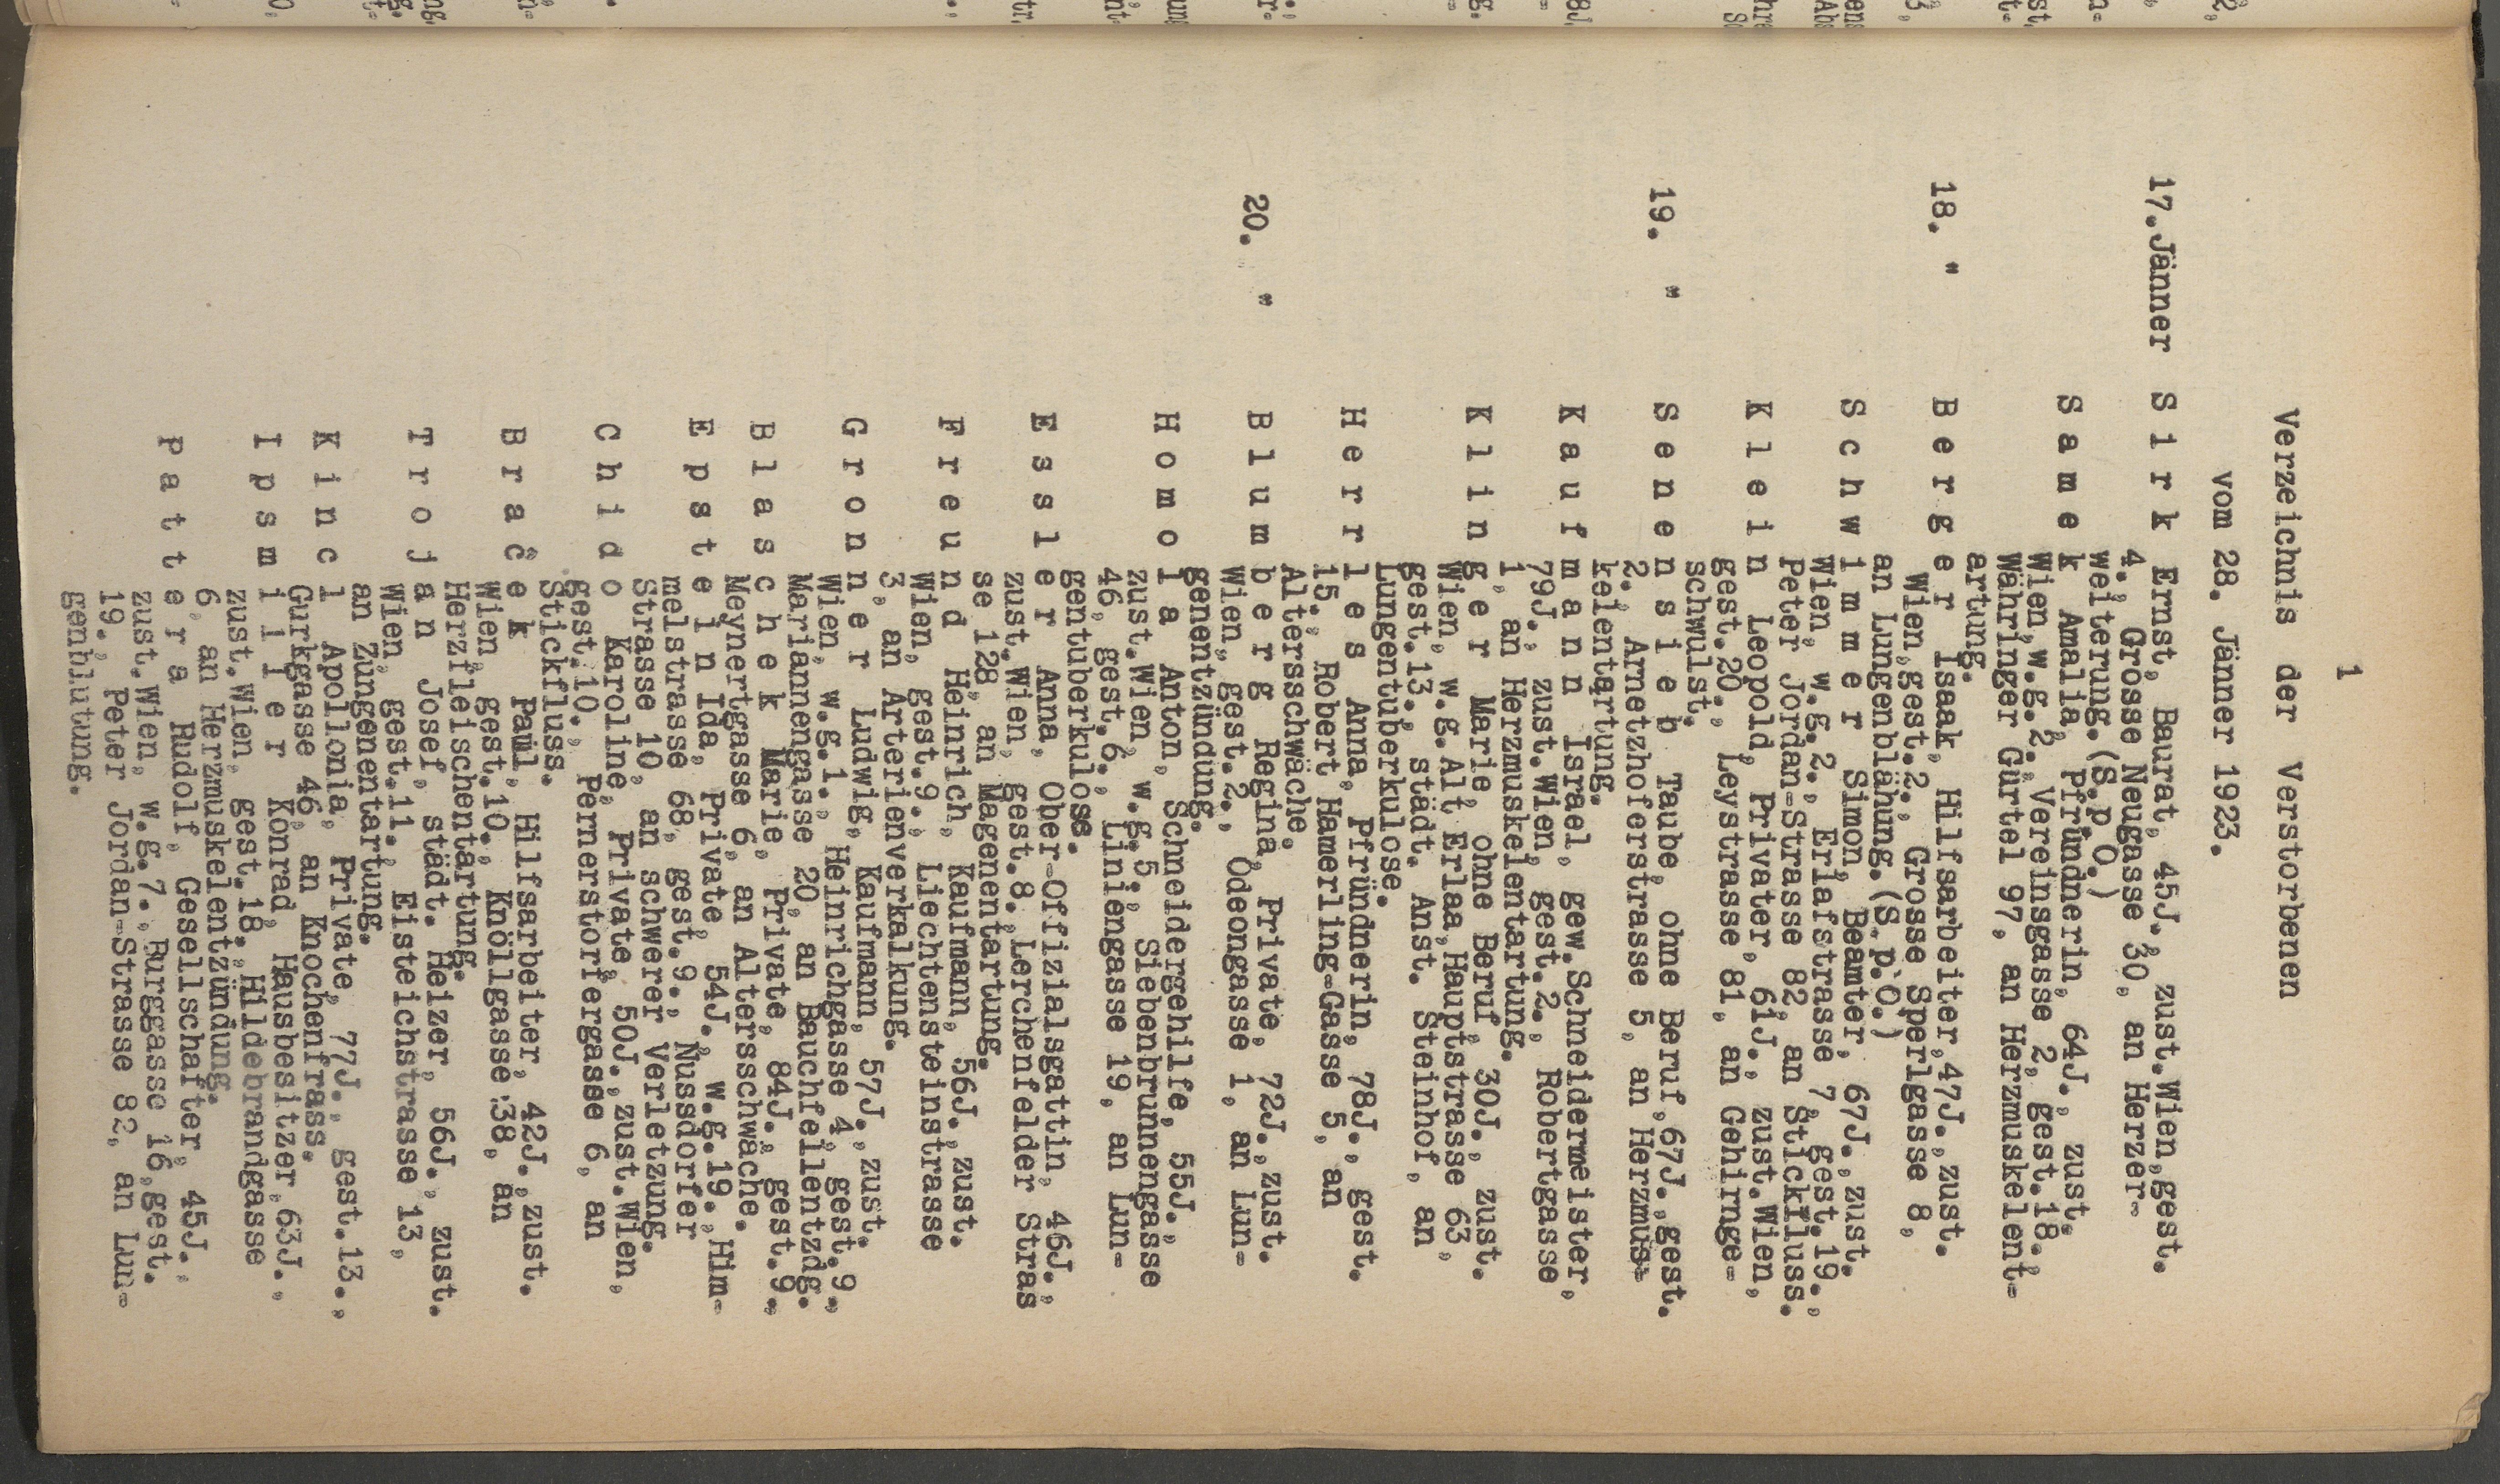 1
Verzeichnis der Verstorbenen
vom 28. Jänner 1923.
17.Jänner S i r k Ernst, Baurat, 45J., zust.Wien,gest.
4., Grosse Neugasse 30, an Herzer-
weiterung.(S.p.O.)
S a m e k Amalia, Pfründnerin, 64J., zust.
Wien,w.g.2.,Vereinsgasse 2, gest.18.,
Währinger Gürtel 97, an Herzmuskelent-
artung.
18. " B e r g e r Isaak, Hilfsarbeiter,47J.,zust.
Wien,gest.2., Grosse Sperlgasse 8,
an Lungenblähung.(S.p.O.)
S c h w i m m e r Simon, Beamter, 67J.,zust.
Wien, w.g.2., Erlafstrasse 7, gest.19.,
Peter Jordan-Strasse 82, an Stickfluss.
K l e i n Leopold, Privater, 61J., zust.Wien,
gest.20., Leystrasse 81, an Gehirnge-
schwulst.
19. " S e n e n s i e b Taube, ohne Beruf,67J.,gest.
2., Arnetzhoferstrasse 5, an Herzmus-
kelentartung.
K a u f m a n n Israel, gew.Schneidermeister,
79J., zust.Wien, gest.2., Robertgasse
1, an Herzmuskelentartung.
K l i n g e r Marie, ohne Beruf, 30J., zust.
Wien, w.g.Alt Erlaa,Hauptstrasse 63,
gest.13., städt. Anst. Steinhof, an
Lungentuberkulose.
H e r r l e s Anna, Pfründnerin, 78J., gest.
15., Robert Hamerling-Gasse 5, an
Altersschwäche.
20. " B l u m b e r g Regina, Private, 72J.,zust.
Wien, gest.2., Odeongasse 1, an Lun-
genentzündung.
H o m o l a Anton, Schneidergehilfe, 55J.,
zust.Wien, w.g.5., Siebenbrunnengasse
46, gest.6., Liniengasse 19, an Lun-
gentuberkulose.
E s s l e r Anna, Ober-Offizialsgattin, 46J.,
zust.Wien, gest.8.,Lerchenfelder Stras
se 128, an Magenentartung.
F r e u n d Heinrich, Kaufmann, 56J.,zust.
Wien, gest.9., Liechtensteinstrasse
3, an Arterienverkalkung.
G r o n n e r Ludwig, Kaufmann, 57J.,zust.
Wien, w.g.1.,Heinrichgasse 4, gest.9.,
Mariannengasse 20, an Bauchfellentzdg.
B l a s c h e k Marie, Private, 84J., gest.9.,
Meynertgasse 6, an Altersschwäche.
E p s t e i n Ida, Private, 54J., w.g.19.,Him-
melstrasse 68, gest.9., Nussdorfer
Strasse 10, an schwerer Verletzung.
C h i d o Karoline, Private, 50J.,zust.Wien,
gest.10., Pernerstorfergasse 6, an
Stickfluss.
B r a č e k Paul, Hilfsarbeiter, 42J.,zust.
Wien, gest.10., Knöllgasse 38, an
Herzfleischentartung.
T r o j a n Josef, städt. Heizer, 56J., zust.
Wien, gest.11., Eisteichstrasse 13,
an Zungenentartung.
K i n c l Apollonia, Private, 77J., gest.13.,
Gurkgasse 46, an Knochenfrass.
I p s m i l l e r Konrad, Hausbesitzer,63J.,
zust.Wien, gest.18.,Hildebrandgasse
6, an Herzmuskelentzündung.
P a t t e r a Rudolf, Gesellschafter, 45J.,
zust.Wien, w.g.7.,Burggasse 16,gest.
19., Peter Jordan-Strasse 82, an Lun-
genblutung.